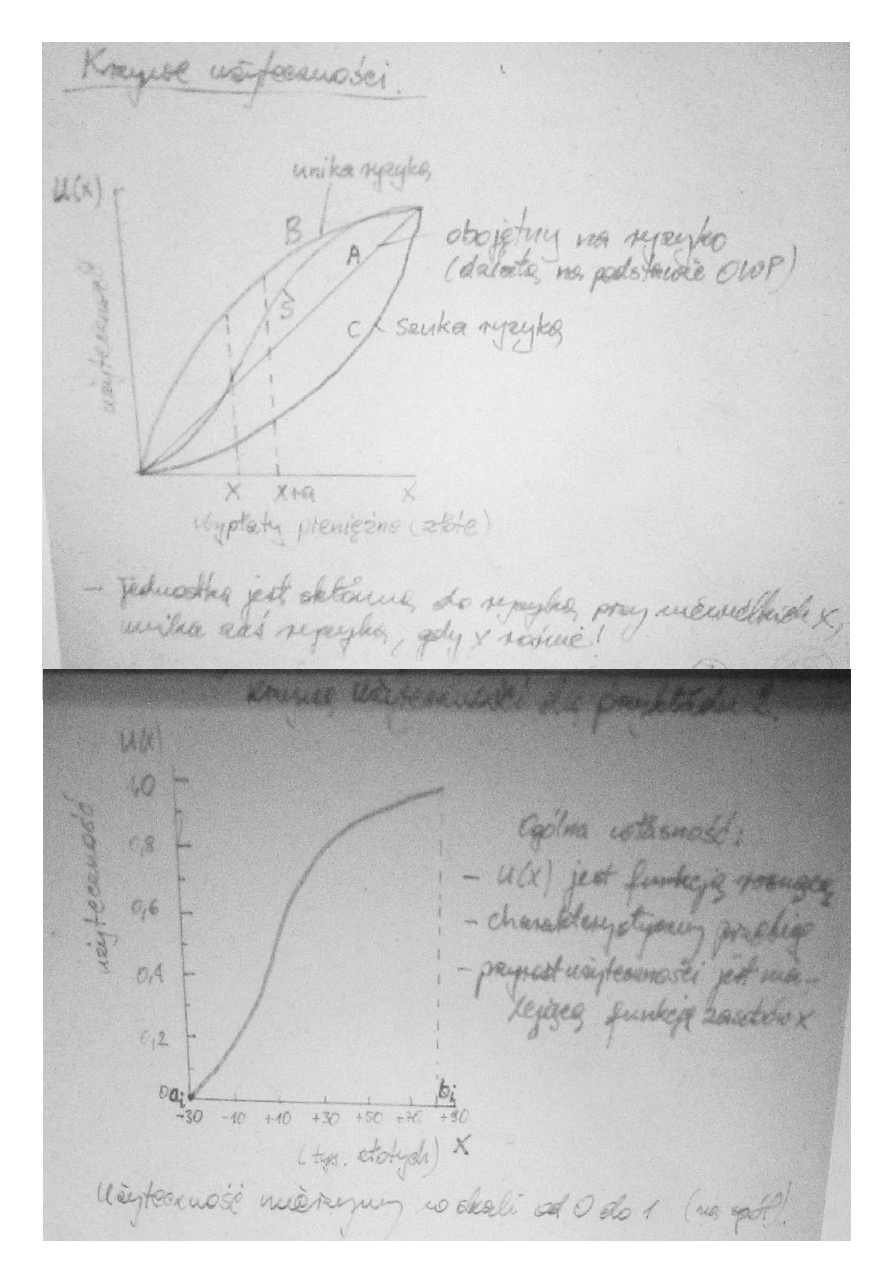 Krzywe użyteczności.
unika ryzyka
U(x)
B
A
obojętny na ryzyko
(działa na podstawie OWP)
S
C
szuka ryzyka
użyteczność
x
x+a
X
Wypłaty pieniężne (złote)
– Jednostka jest skłonna do ryzyka przy niewielkich x,
unika zaś ryzyka, gdy x rośnie!
Krzywa użyteczności dla przykładu 2.
U(x)
użyteczność
1,0
0,8
0,6
0,4
0,2
0
ai
bi
-30 -10 +10 +30 +50 +70 +90
(tys. złotych) X
Ogólna własność:
– U(x) jest funkcją rosnącą
– charakterystyczny przebieg
– przyrost użyteczności jest ma-
lejącą funkcją zasobów x
Użyteczność mierzymy w skali od 0 do 1 (na ogół)!